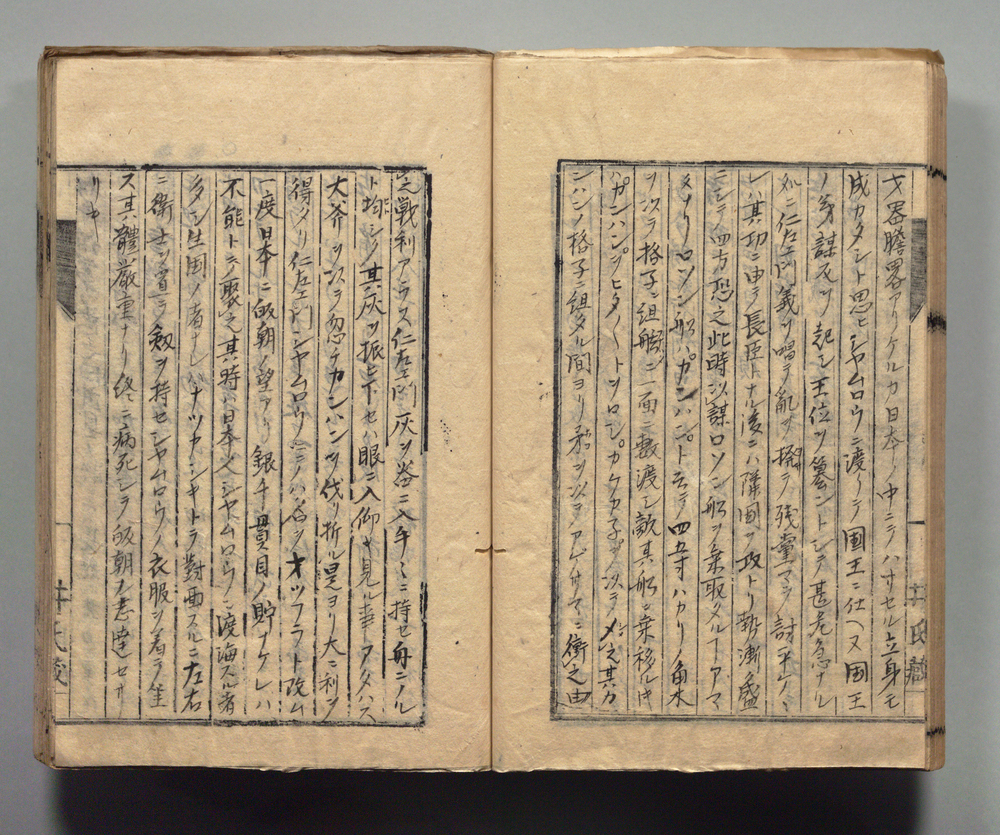 才器膽畧アリケルカ日本ノ中ニテハサセル立身モ
成カタシト思ヒシヤムロウニ渡リテ国王ニ仕ヘヌ国王
ノ弟謀反ヲ起シ王位ヲ簒ントシテ甚危急ナル
処ニ仁左エ門義ヲ唱テ亂ヲ撥テ残黨マテ討平ケ
シ其功ニ由テ長臣トナル後ニハ隣国ヲ攻トリ勢漸ク盛
ニシテ四方恐之此時以謀ロソン船ヲ乗取タル了アマ
タナリロソン船ハガンハントテ四五寸ハカリノ角木
ヲ以テ格子ニ組艫ニ一面ニ敷渡シ敵其船ニ乗移ル时
ハガンハンヲヒタ〱トツロシカケカ子ヲ以テメ之其カ
ンハンノ格子ニ組タル間ヨリ矛ヲ以テアゲサマニ衝之由
之戦利アラス仁左エ門灰ヲ俗ニ入手ミニ持セ舟ニノル
ト均シク其灰ヲ振ヒ下セハ眼ニ入仰キ見ル事アタハス
大斧ヲ以テ忽チカンハンヲ伐リ折ル是ヨリ大ニ利ヲ
得タリ仁左エ門シヤムロウニテハ名ヲオツフラト改ム
一度日本ニ皈朝ノ望アリ銀千貫目ノ貯ナケレハ
不能トテ聚之其時ハ日本ヨリシヤムロウニ渡海スル者
多シ生国ノ者ナレバナツカシキトテ對面スルニ左右
ニ衛士ヲ置テ剱ヲ持セシヤムロウノ衣服ヲ着テ坐
ス其體厳重ナリ終ニ病死シテ皈朝ノ志達セサ
リキ
井氏蔵
井氏蔵